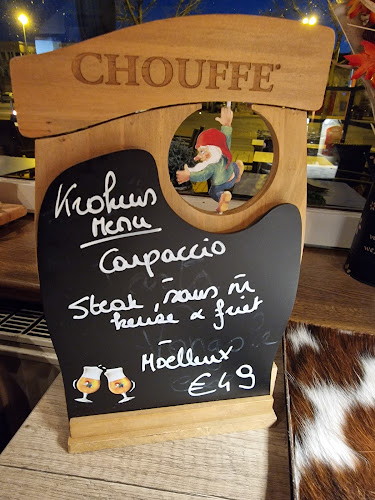 CHOUFFE
Krokus
Menu
Carpaccio
-
Steak, saus nr
keuze & friet
-
Moelleux
€49